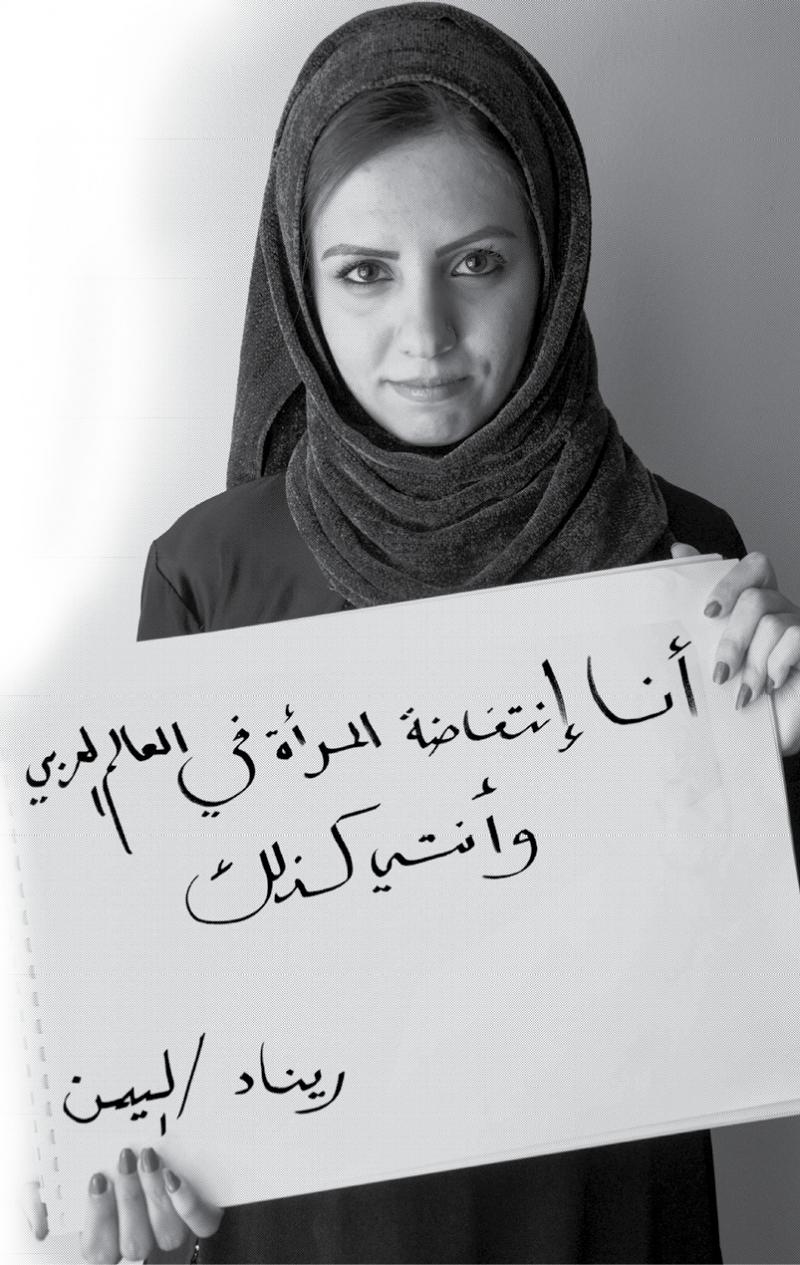 أنا إنتفاضة المرأة في العالم العربي
وأنتي كذلك
ريناد / اليمن